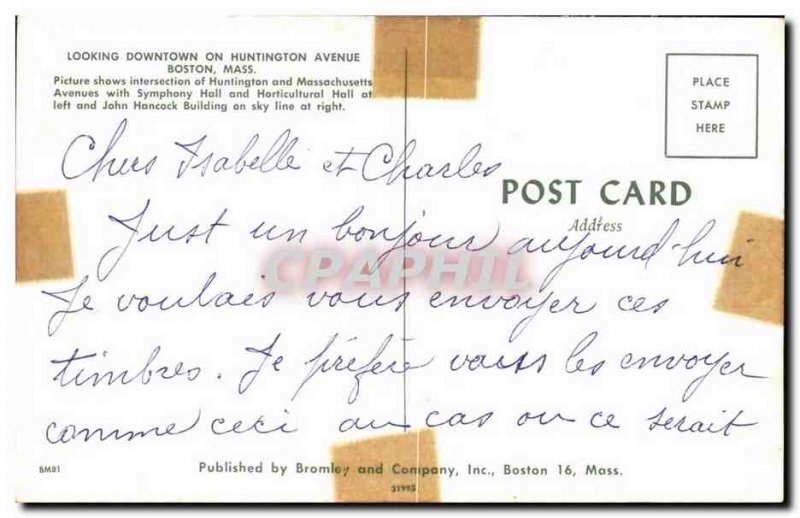 LOOKING DOWNTOWN ON HUNTINGTON AVENUE
BOSTON, MASS.
Picture shows intersection of Huntington and Massachusetts
Avenues with Symphony Hall and Horticultural Hall at
left and John Hancock Building on sky line at right.
PLACE
STAMP
HERE
Chers Isabelle et Charles
POST CARD
Address
Just un bonjour aujourd'hui
CPAPHIL
Je voulais vous envoyer ces
timbres. Je préfère vous les envoyer
comme ceci au cas ou ce serait
BM81
Published by Bromley and Company, Inc., Boston 16, Mass.
21995